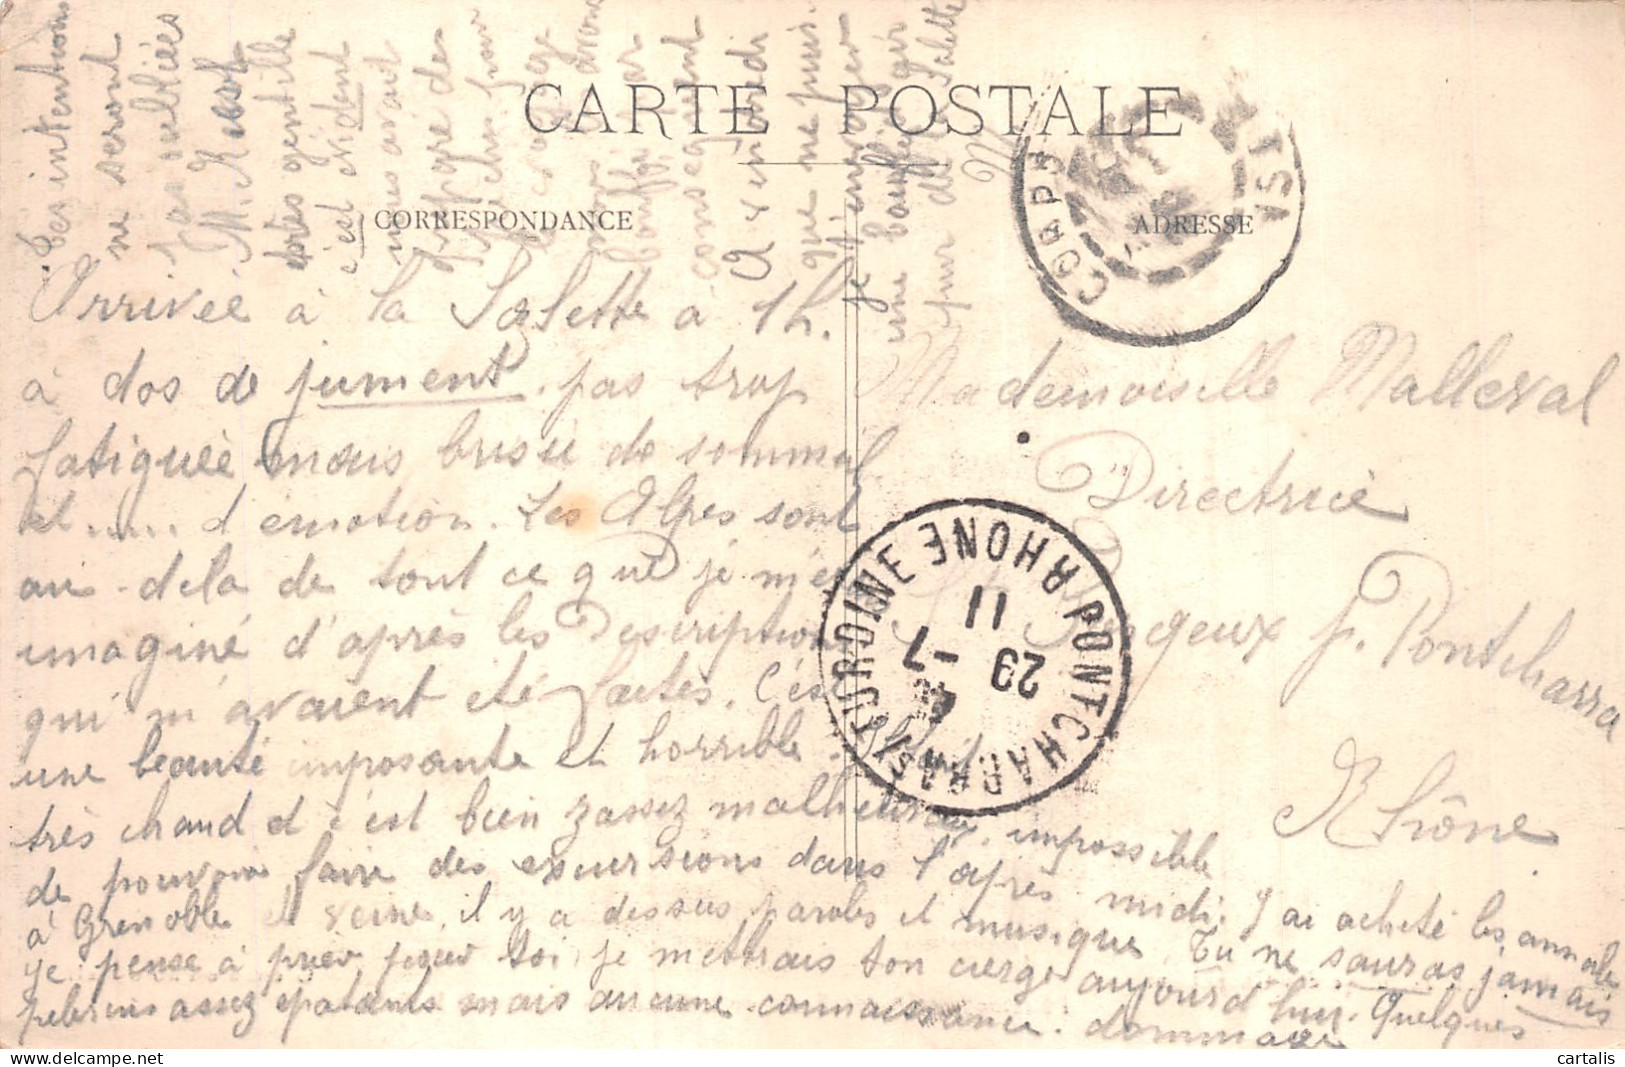 CARTE POSTALE
CORRESPONDANCE
ADRESSE
Arrivée à la Salette à 1h.
à dos de jument. pas trop
fatiguée mais brisée de sommeil
et ..... d'émotion. Les Alpes sont
au-delà de tout ce que je m'étais
imaginé d'après les Descriptions
qui m'avaient été faites. C'est
une beauté imposante et horrible.
très chaud et c'est bien zassez malheureux, impossible
de pouvoir faire des excursions dans l'après midi. J'ai acheté les annales
à Grenoble et il y a dessus paroles et musique Tu ne sauras jamais
je pense à prier pour toi, je mettrais ton cierge aujourd'hui. Quelques
pelerins assez épatants mais aucune connaissance: dommage
tes intentions
ne seront
pas oubliées
M.
très gentille
c'est évident
nous avait
le voyage
nous avons
par
conséquent
A vendredi
que ne puis-
je t'envoyer
une bouffée d'air
pur de la Salette
M
Mademoiselle Malleval
Directrice
p. Pontcharra
Rhône
CORPS
ISÈRE
PONTCHARRA S/ TURDINE RHONE
11
29 -7
cartalis